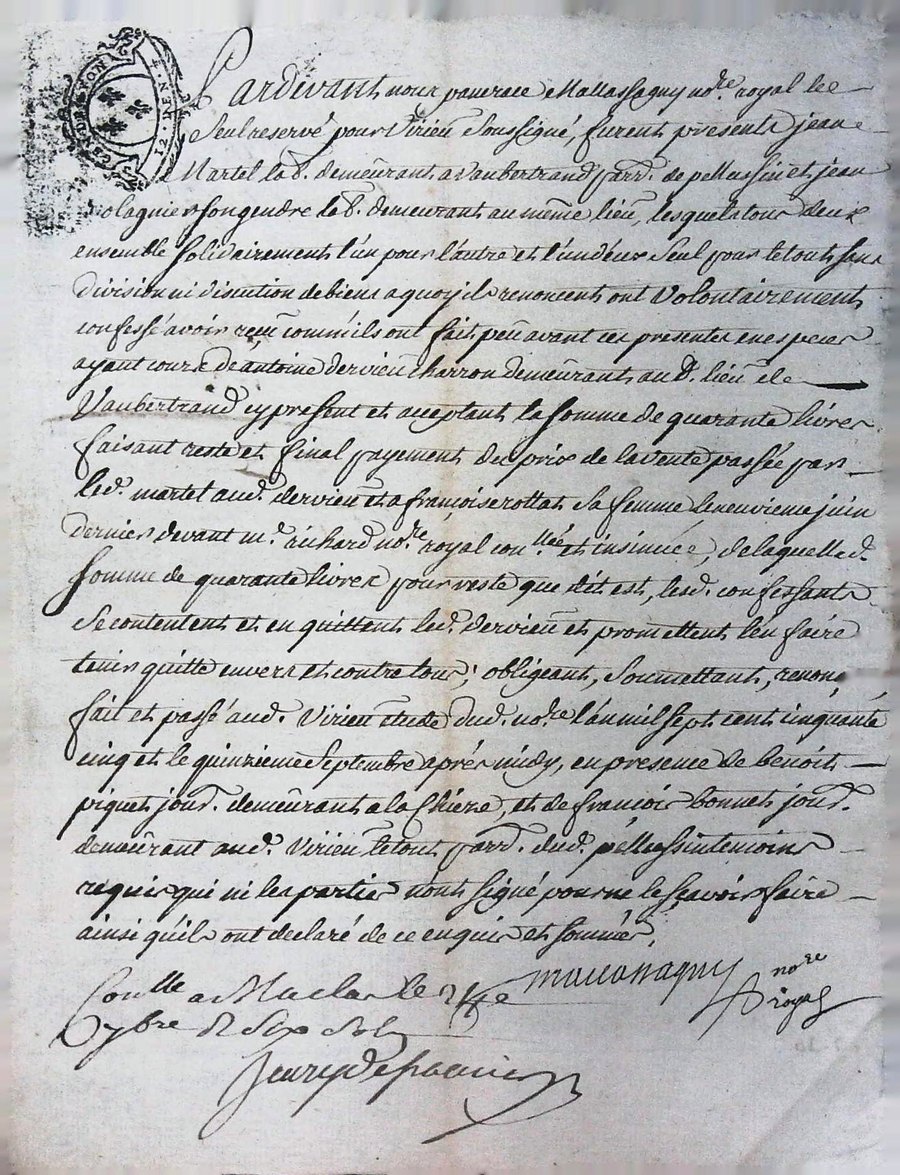 GEN. DE LYON
12 DEN. 4.
Pardevant nous pancrace Mallassagny no.re royal le
Seul reservé pour Virieu Soussigné, furent presents jean
Martel lab.r demeurant a Vaubertrand parr. de pellussin et jean
son gendre lab.r demeurant au même lieu, lesquels tous deux
ensemble Solidairement l'un pour l'autre et l'un d'eux Seul pour le tout sans
division ni discution de biens a quoy ils renoncent ont Volontairement
confessé avoir reçu comm'ils ont fait peu avant ces presentes en especes
ayant cours de antoine dervieu Charron demeurant aud. lieu de
Vaubertrand cy present et acceptant la Somme de quarante livres
faisant reste et final payement du prix de la vente passée par
led. martel aud. dervieu et a françoise rottat Sa femme le neuvieme juin
dernier devant m.e no.re royal con.llée et insinuée, de laquelle d.
Somme de quarante livres pour reste que dit est, lesd. confessants
Se contentent et en quittent led. dervieu et promettent l'en faire
tenir quitte envers et contre tous; obligeant, Soumettant, renonç.
fait et passé aud. Virieu étude dud. no.re l'an mil sept cent cinquante
cinq et le quinzieme Septembre après midy, en presence de benoit
piquet jour. demeurant a la Chieze, et de françois bonnet jour.
demeurant aud. Virieu le tout parr. dud. pellussin temoins
requis qui ni les parties n'ont Signé pour ne le Sçavoir faire
ainsi qu'ils ont declaré de ce enquis et sommés.
Con.lle a Maclas le 24e
7bre R Six Sols
Mallassagny no.re royal